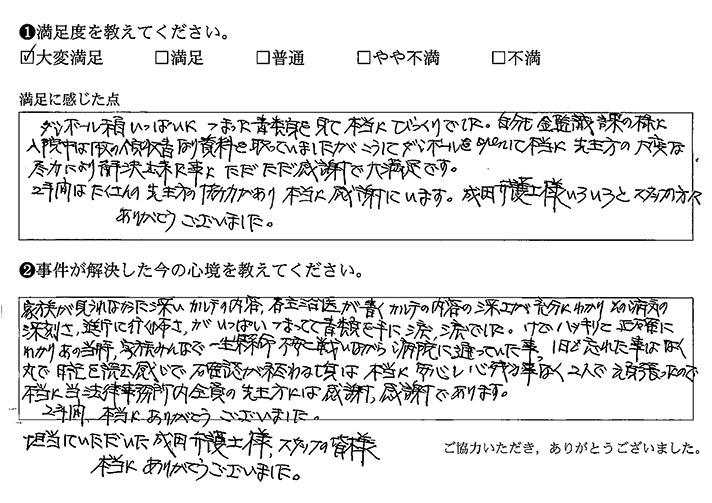 ❶満足度を教えてください。
☑大変満足 □満足 □普通 □やや不満 □不満
満足に感じた点
ダンボール箱いっぱいに つまった書類を見て 本当に びっくりでした。自分も
入院中は 資料を取っていましたが こうして ダンボールを 本当に 先生方の 大変な
尽力により 解決出来た事に ただただ感謝で大満足です。
2年間は たくさんの 先生方の 協力があり 本当に 感謝しています。成田弁護士様 いろいろと スタッフの方々
ありがとう ございました。
❷事件が解決した今の心境を教えてください。
家族が 見られなかった 深い カルテの内容、主治医が書く カルテの内容の 深さが 充分に わかり その病気の
深刻さ、がいっぱい つまってて 書類を手に 涙、涙でした。
わかり あの当時、家族みんなで 一生懸命 不安と戦いながら 病院に通っていた事、1日と忘れた事はなく
本当に 安心し 心残る事なく 2人で 頑張ったので
本当に 当法律事務所内全員の 先生方には 感謝、感謝で あります。
2年間 本当に ありがとう ございました。
担当していただいた 成田弁護士様、スタッフの皆様
本当に ありがとうございました。
ご協力いただき，ありがとうございました。